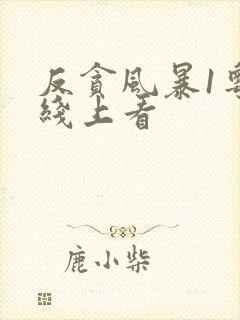 反貪風暴1
綫上看
鹿小柴